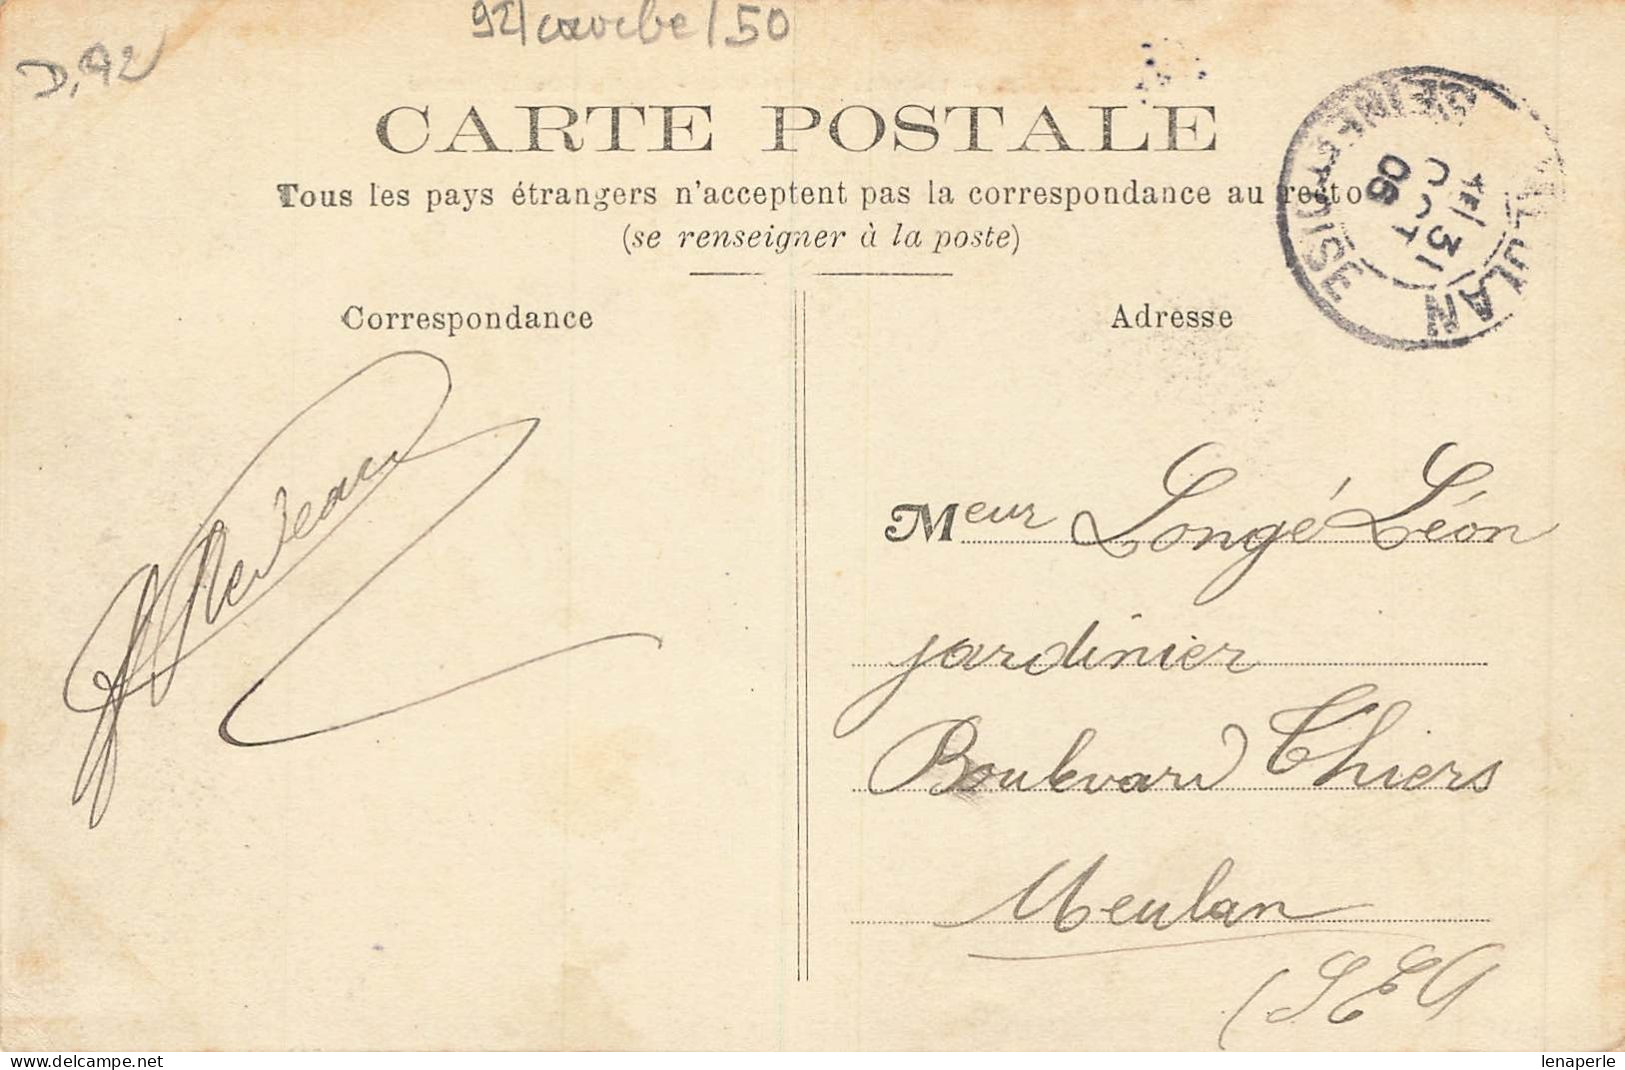 92/courbe/50
D.92
CARTE POSTALE
Tous les pays étrangers n'acceptent pas la correspondance au recto
(se renseigner à la poste)
MEULAN
SEINE-ET-OISE
4E/31
OCT
06
Correspondance
Adresse
Meur Longé Léon
jardinier
Boulevard Thiers
Meulan
(S E O
lenaperle